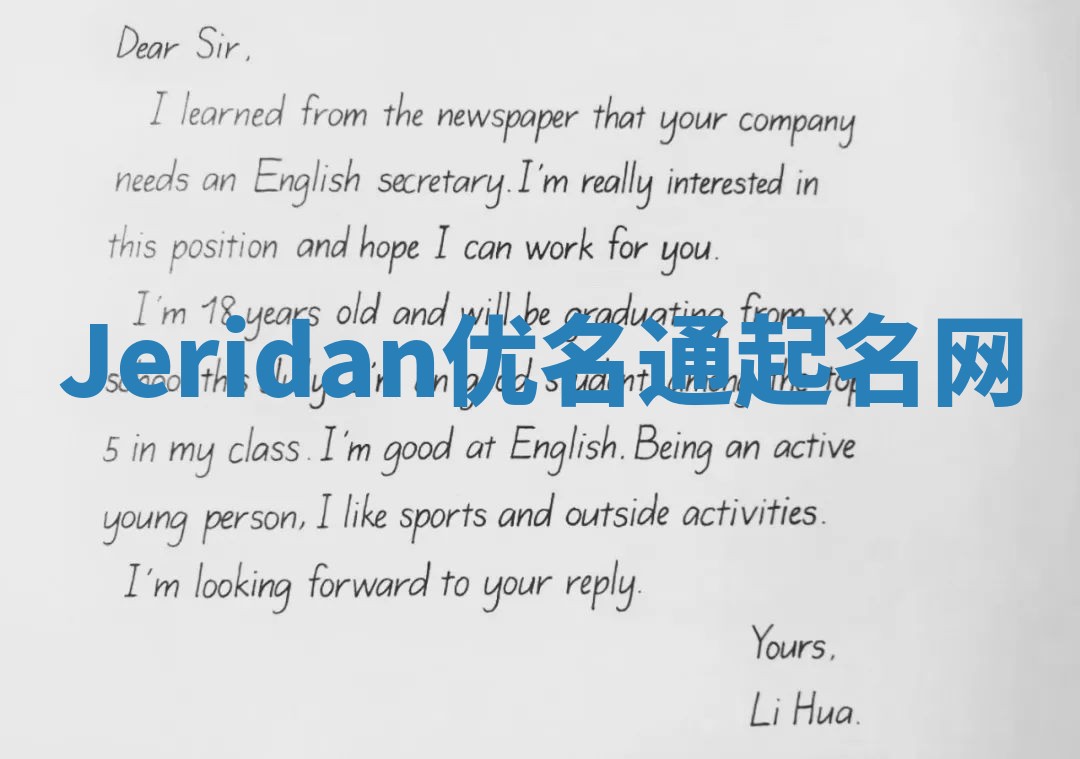 Dear Sir,
I learned from the newspaper that your company
needs an English secretary. I'm really interested in
this position and hope I can work for you.
I'm 18 years old and will be graduating from xx
Jeridan优名通起名网
school this July. I'm an good student, among the top
5 in my class. I'm good at English. Being an active
young person, I like sports and outside activities.
I'm looking forward to your reply.
Yours,
Li Hua.